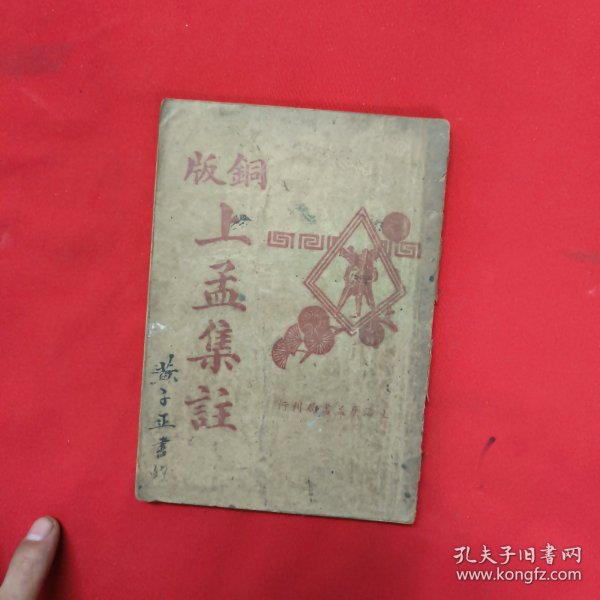 銅版
上孟集註
上海廣益書局刊行
黄子正書
孔夫子旧书网
www.kongfz.com